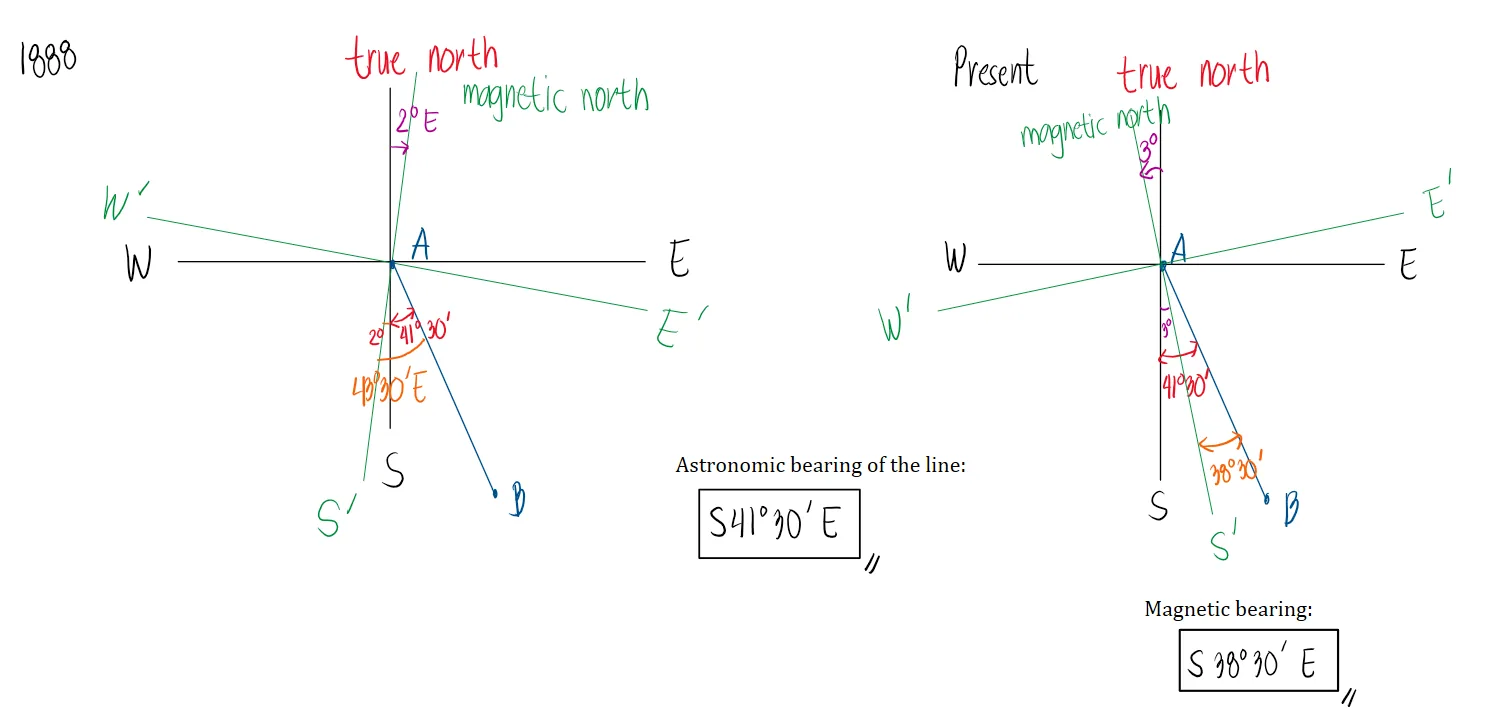 1888
true north
magnetic north
2° E
W'
W
A
E
E'
2°
41° 30'
43°30'E
S
S'
B
Astronomic bearing of the line:
S41°30' E
Present
true north
magnetic north
3°
E'
W
A
E
W'
3°
41°30'
38°30'
S
B
S'
Magnetic bearing:
S 38° 30' E